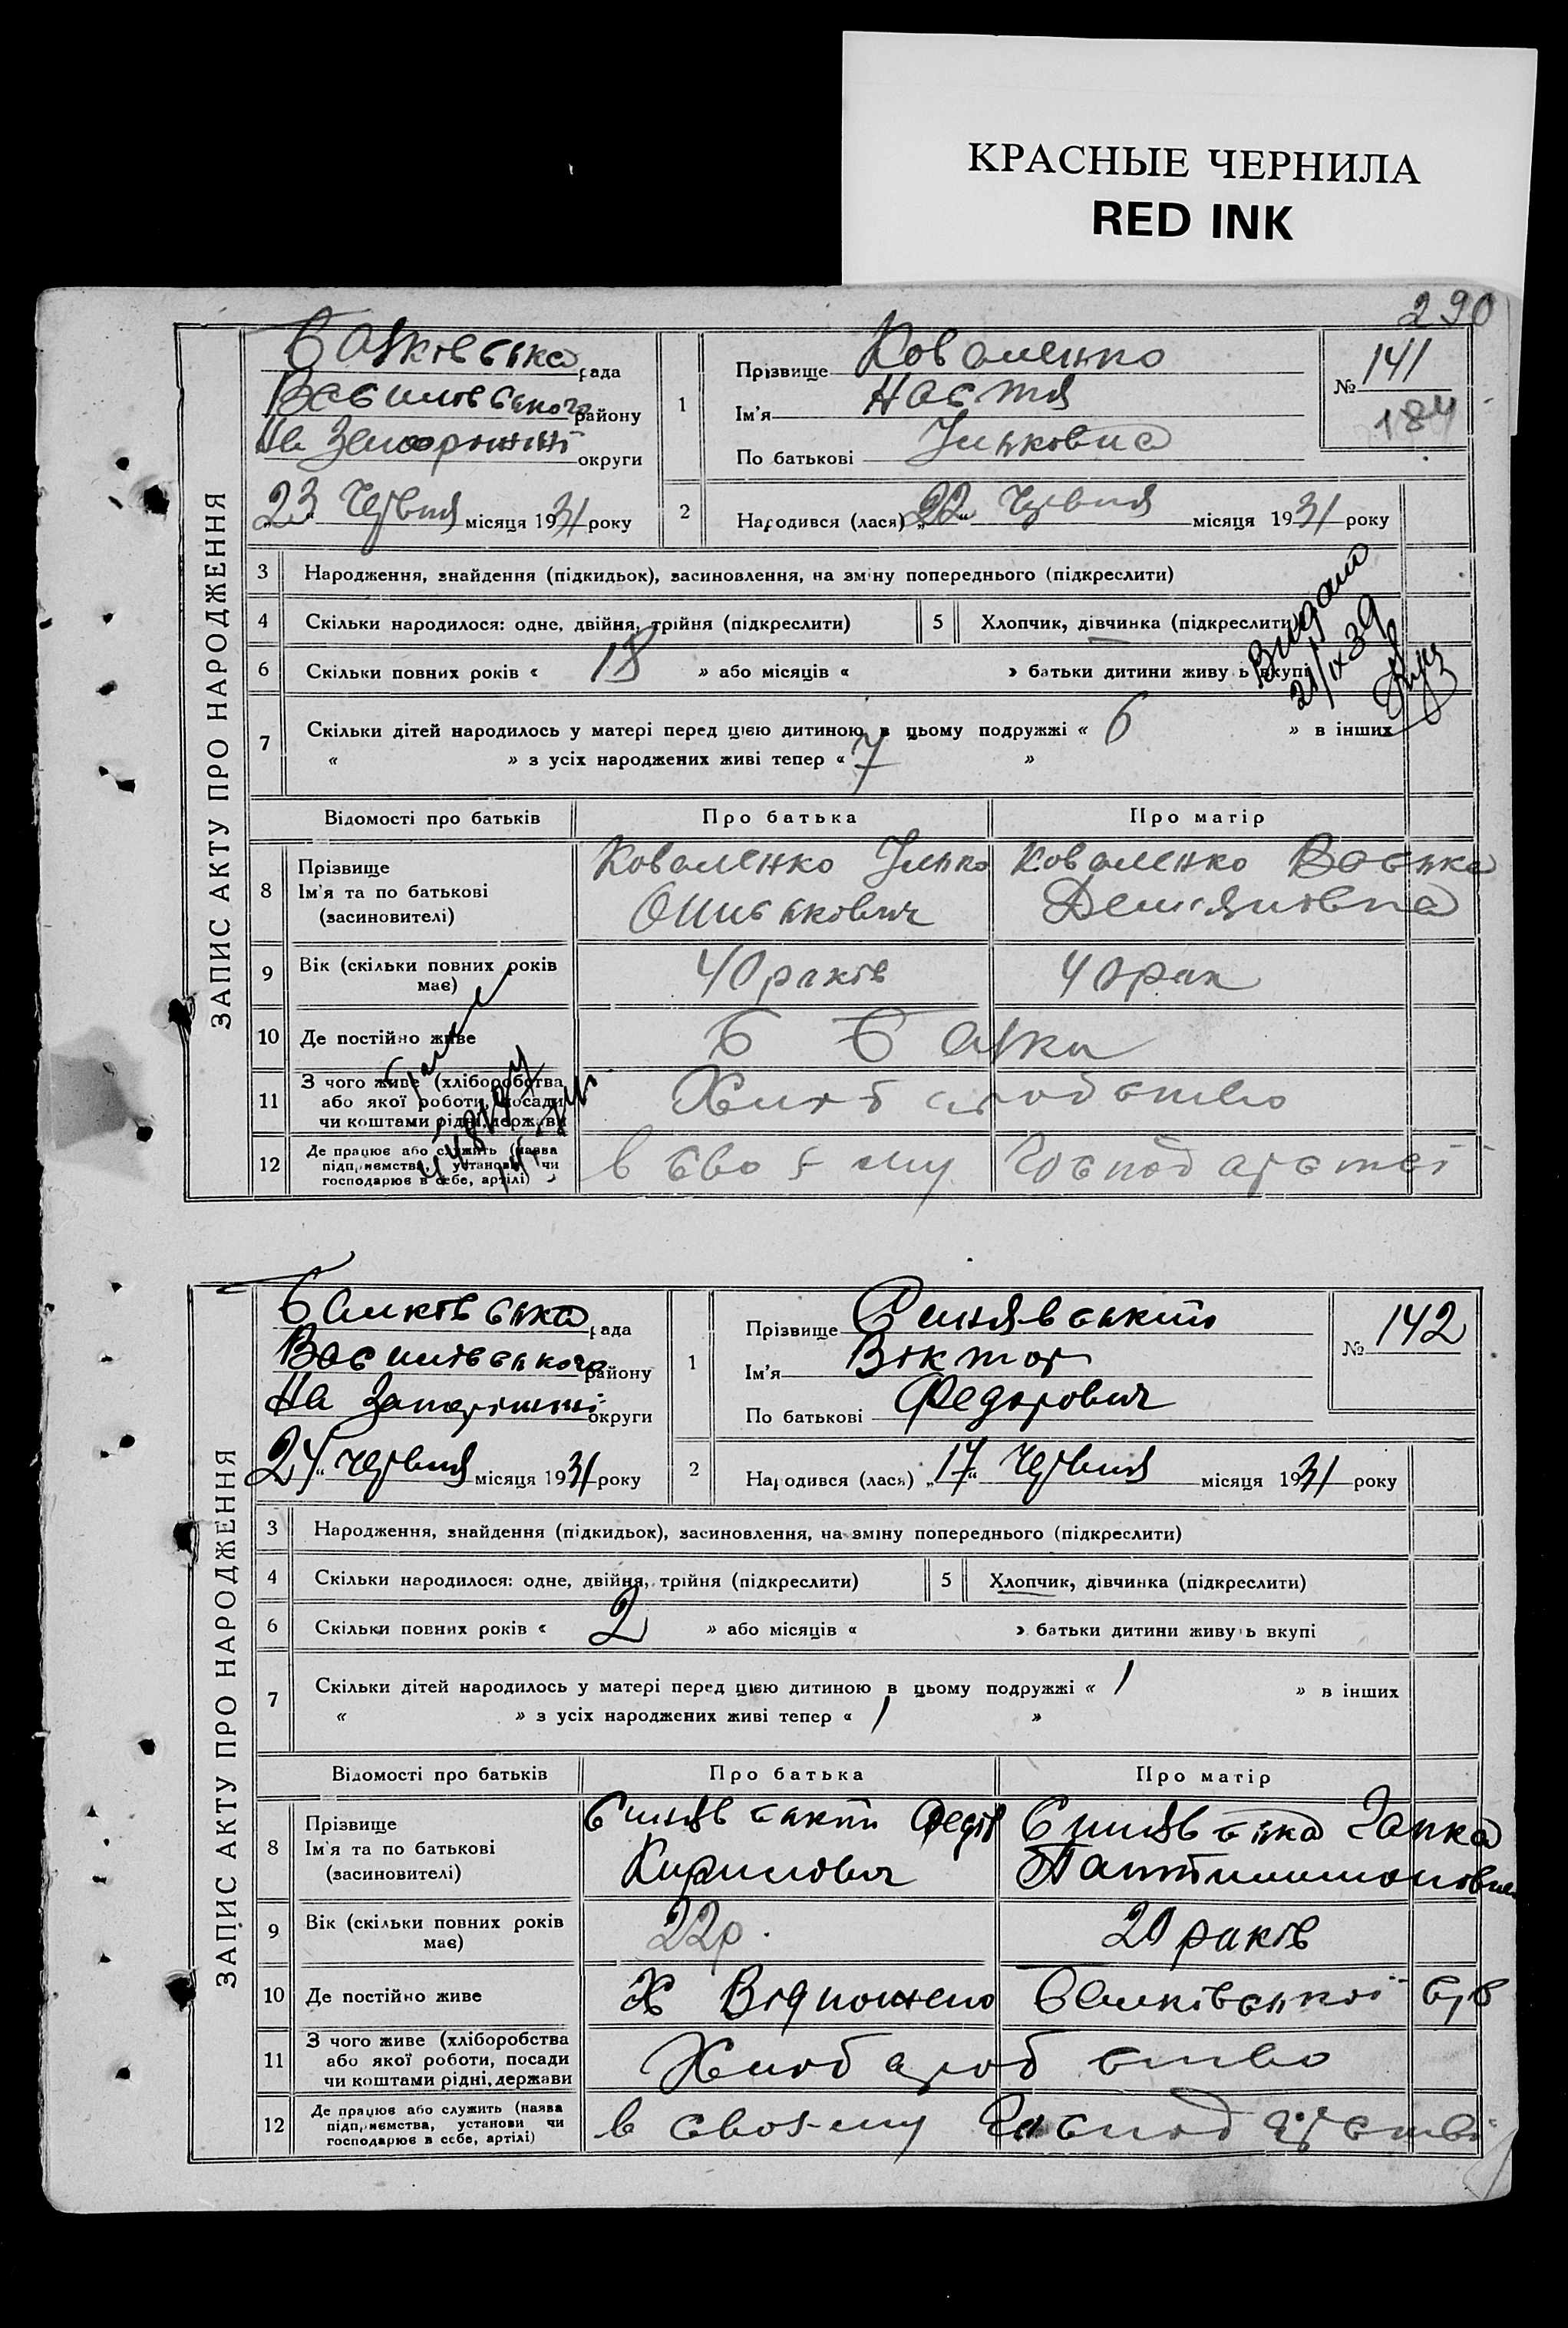 КРАСНЫЕ ЧЕРНИЛА
RED INK
290
ЗАПИС АКТУ ПРО НАРОДЖЕННЯ
Балковська рада
Василівського району
На Запоріжжі округи
„23“ Червня місяця 1931 року
1
Прізвище Коваленко
Ім'я Настя
По батькові Ільковна
№ 141
184
2
Народився (лася) „22“ Червня місяця 1931 року
3 Народження, знайдення (підкидьок), засиновлення, на зміну попереднього (підкреслити)
4 Скільки народилося: одне, двійня, трійня (підкреслити)
5 Хлопчик, дівчинка (підкреслити)
6 Скільки повних років « 18 » або місяців « » батьки дитини живуть вкупі
Видано
21/IX 39
7 Скільки дітей народилось у матері перед цією дитиною в цьому подружжі « 6 » в інших
« » з усіх народжених живі тепер « 7 »
Відомості про батьків Про батька Про матір
8 Прізвище
Ім'я та по батькові
(засиновителі)
Коваленко Ілько
Коваленко Васька
Демяновна
9 Вік (скільки повних років
має)
40 раків
40 рак
10 Де постійно живе
Б Балки
11 З чого живе (хліборобства
або якої роботи, посади
чи коштами рідні, держави
Хлібаробство
12 Де працює або служить (назва
підприємства, установи чи
господарює в себе, артілі)
в своєму Господарстві
ЗАПИС АКТУ ПРО НАРОДЖЕННЯ
Балківська рада
Василівського району
На Запоріжжі округи
„24“ Червня місяця 1931 року
1
Прізвище Синявський
Ім'я Віктор
По батькові Федорович
№ 142
2
Народився (лася) „17“ Червня місяця 1931 року
3 Народження, знайдення (підкидьок), засиновлення, на зміну попереднього (підкреслити)
4 Скільки народилося: одне, двійня, трійня (підкреслити)
5 Хлопчик, дівчинка (підкреслити)
6 Скільки повних років « 2 » або місяців « » батьки дитини живуть вкупі
7 Скільки дітей народилось у матері перед цією дитиною в цьому подружжі « 1 » в інших
« » з усіх народжених живі тепер « 1 »
Відомості про батьків Про батька Про матір
8 Прізвище
Ім'я та по батькові
(засиновителі)
Синявський Федір
Кирилович
Синявська Гапка
9 Вік (скільки повних років
має)
22 р.
20 раків
10 Де постійно живе
Х Відножено Балківської с/в
11 З чого живе (хліборобства
або якої роботи, посади
чи коштами рідні, держави
Хлібаробство
12 Де працює або служить (назва
підприємства, установи чи
господарює в себе, артілі)
в своєму Господарстві